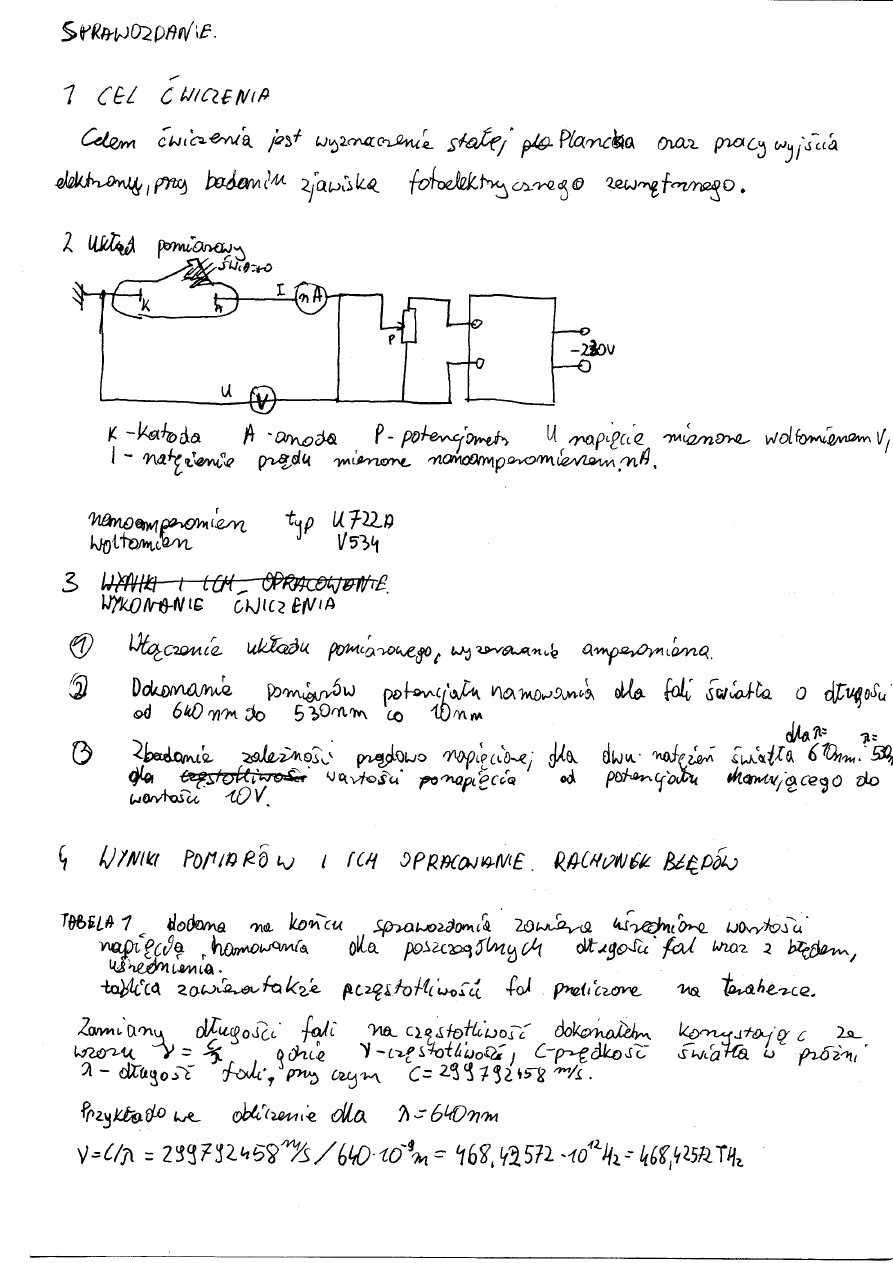 SPRAWOZDANIE.
1 CEL ĆWICZENIA
Celem ćwiczenia jest wyznaczenie stałej Plancka oraz pracy wyjścia
elektronu, przy badaniu zjawiska fotoelektrycznego zewnętrznego.
2 Układ pomiarowy
ŚWIATŁO
I nA
K A
P
~230V
U V
K - katoda A - anoda P - potencjometr U napięcie mierzone woltomierzem V,
I - natężenie prądu mierzone nanoamperomierzem nA.
nanoamperomierz typ U722A
woltomierz V534
3 WYNIKI I ICH OPRACOWANIE.
WYKONANIE ĆWICZENIA
1 Włączenie układu pomiarowego, wyzerowanie amperomierza.
2 Dokonanie pomiarów potencjału hamowania dla fali światła o długości
od 640nm do 530nm co 10nm
dla λ= λ=
3 Zbadanie zależności prądowo napięciowej dla dwu natężeń światła 610nm. 530n
dla częstotliwości wartości napięcia od potencjału hamującego do
wartości 10V.
4 WYNIKI POMIARÓW I ICH OPRACOWANIE. RACHUNEK BŁĘDÓW
TABELA 1 dodana na końcu sprawozdania zawiera uśrednione wartości
napięcia hamowania dla poszczególnych długości fal wraz z błędem,
uśrednienia.
tablica zawiera także częstotliwość fal przeliczone na teraherce.
Zamiany długości fali na częstotliwość dokonałem korzystając ze
wzoru ν = c/λ gdzie ν-częstotliwość, C-prędkość światła w próżni
λ - długość fali, przy czym C = 299792458 m/s.
Przykładowe obliczenie dla λ=640nm
ν=C/λ = 299792458 m/s / 640·10⁻⁹m = 468,42572·10¹²Hz = 468,42572 THz